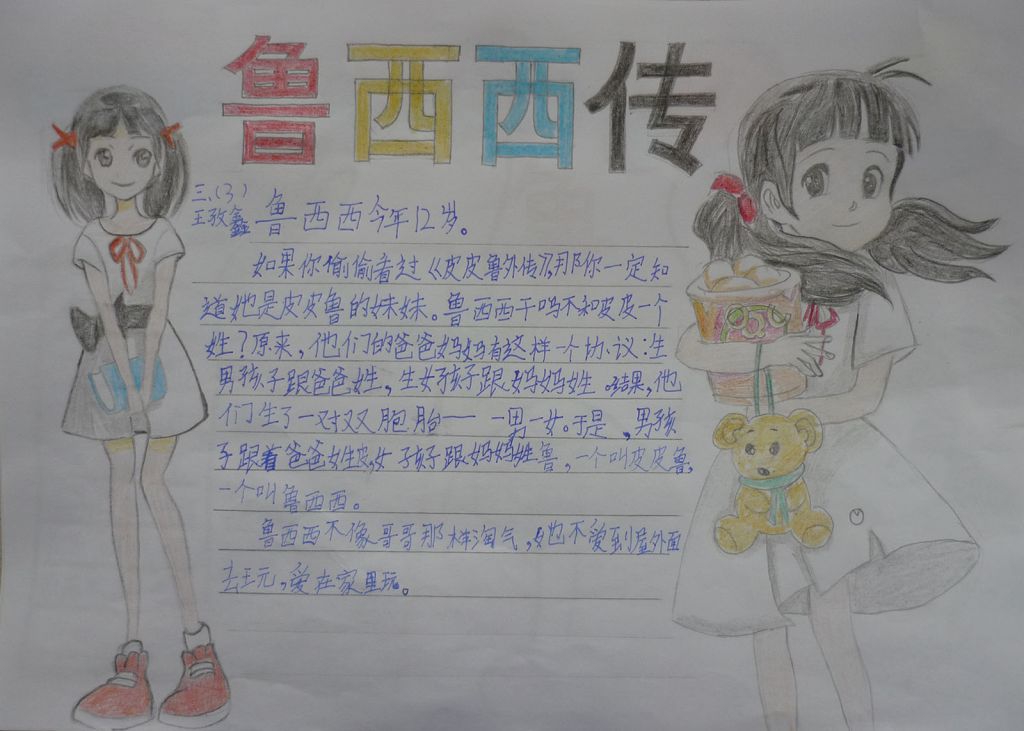 鲁西西传
三、(3)
王孜鑫
鲁西西今年12岁。
如果你偷偷看过《皮皮鲁外传》,那你一定知
道她是皮皮鲁的妹妹。鲁西西干吗不和皮皮一个
姓?原来,他们的爸爸妈妈有这样一个协议:生
男孩子跟爸爸姓,生女孩子跟妈妈姓。结果,他
们生了一对双胞胎——一男一女。于是,男孩
子跟着爸爸姓皮,女孩子跟妈妈姓鲁,一个叫皮皮鲁,
一个叫鲁西西。
鲁西西不像哥哥那样淘气,她也不爱到屋外面
去玩,爱在家里玩。